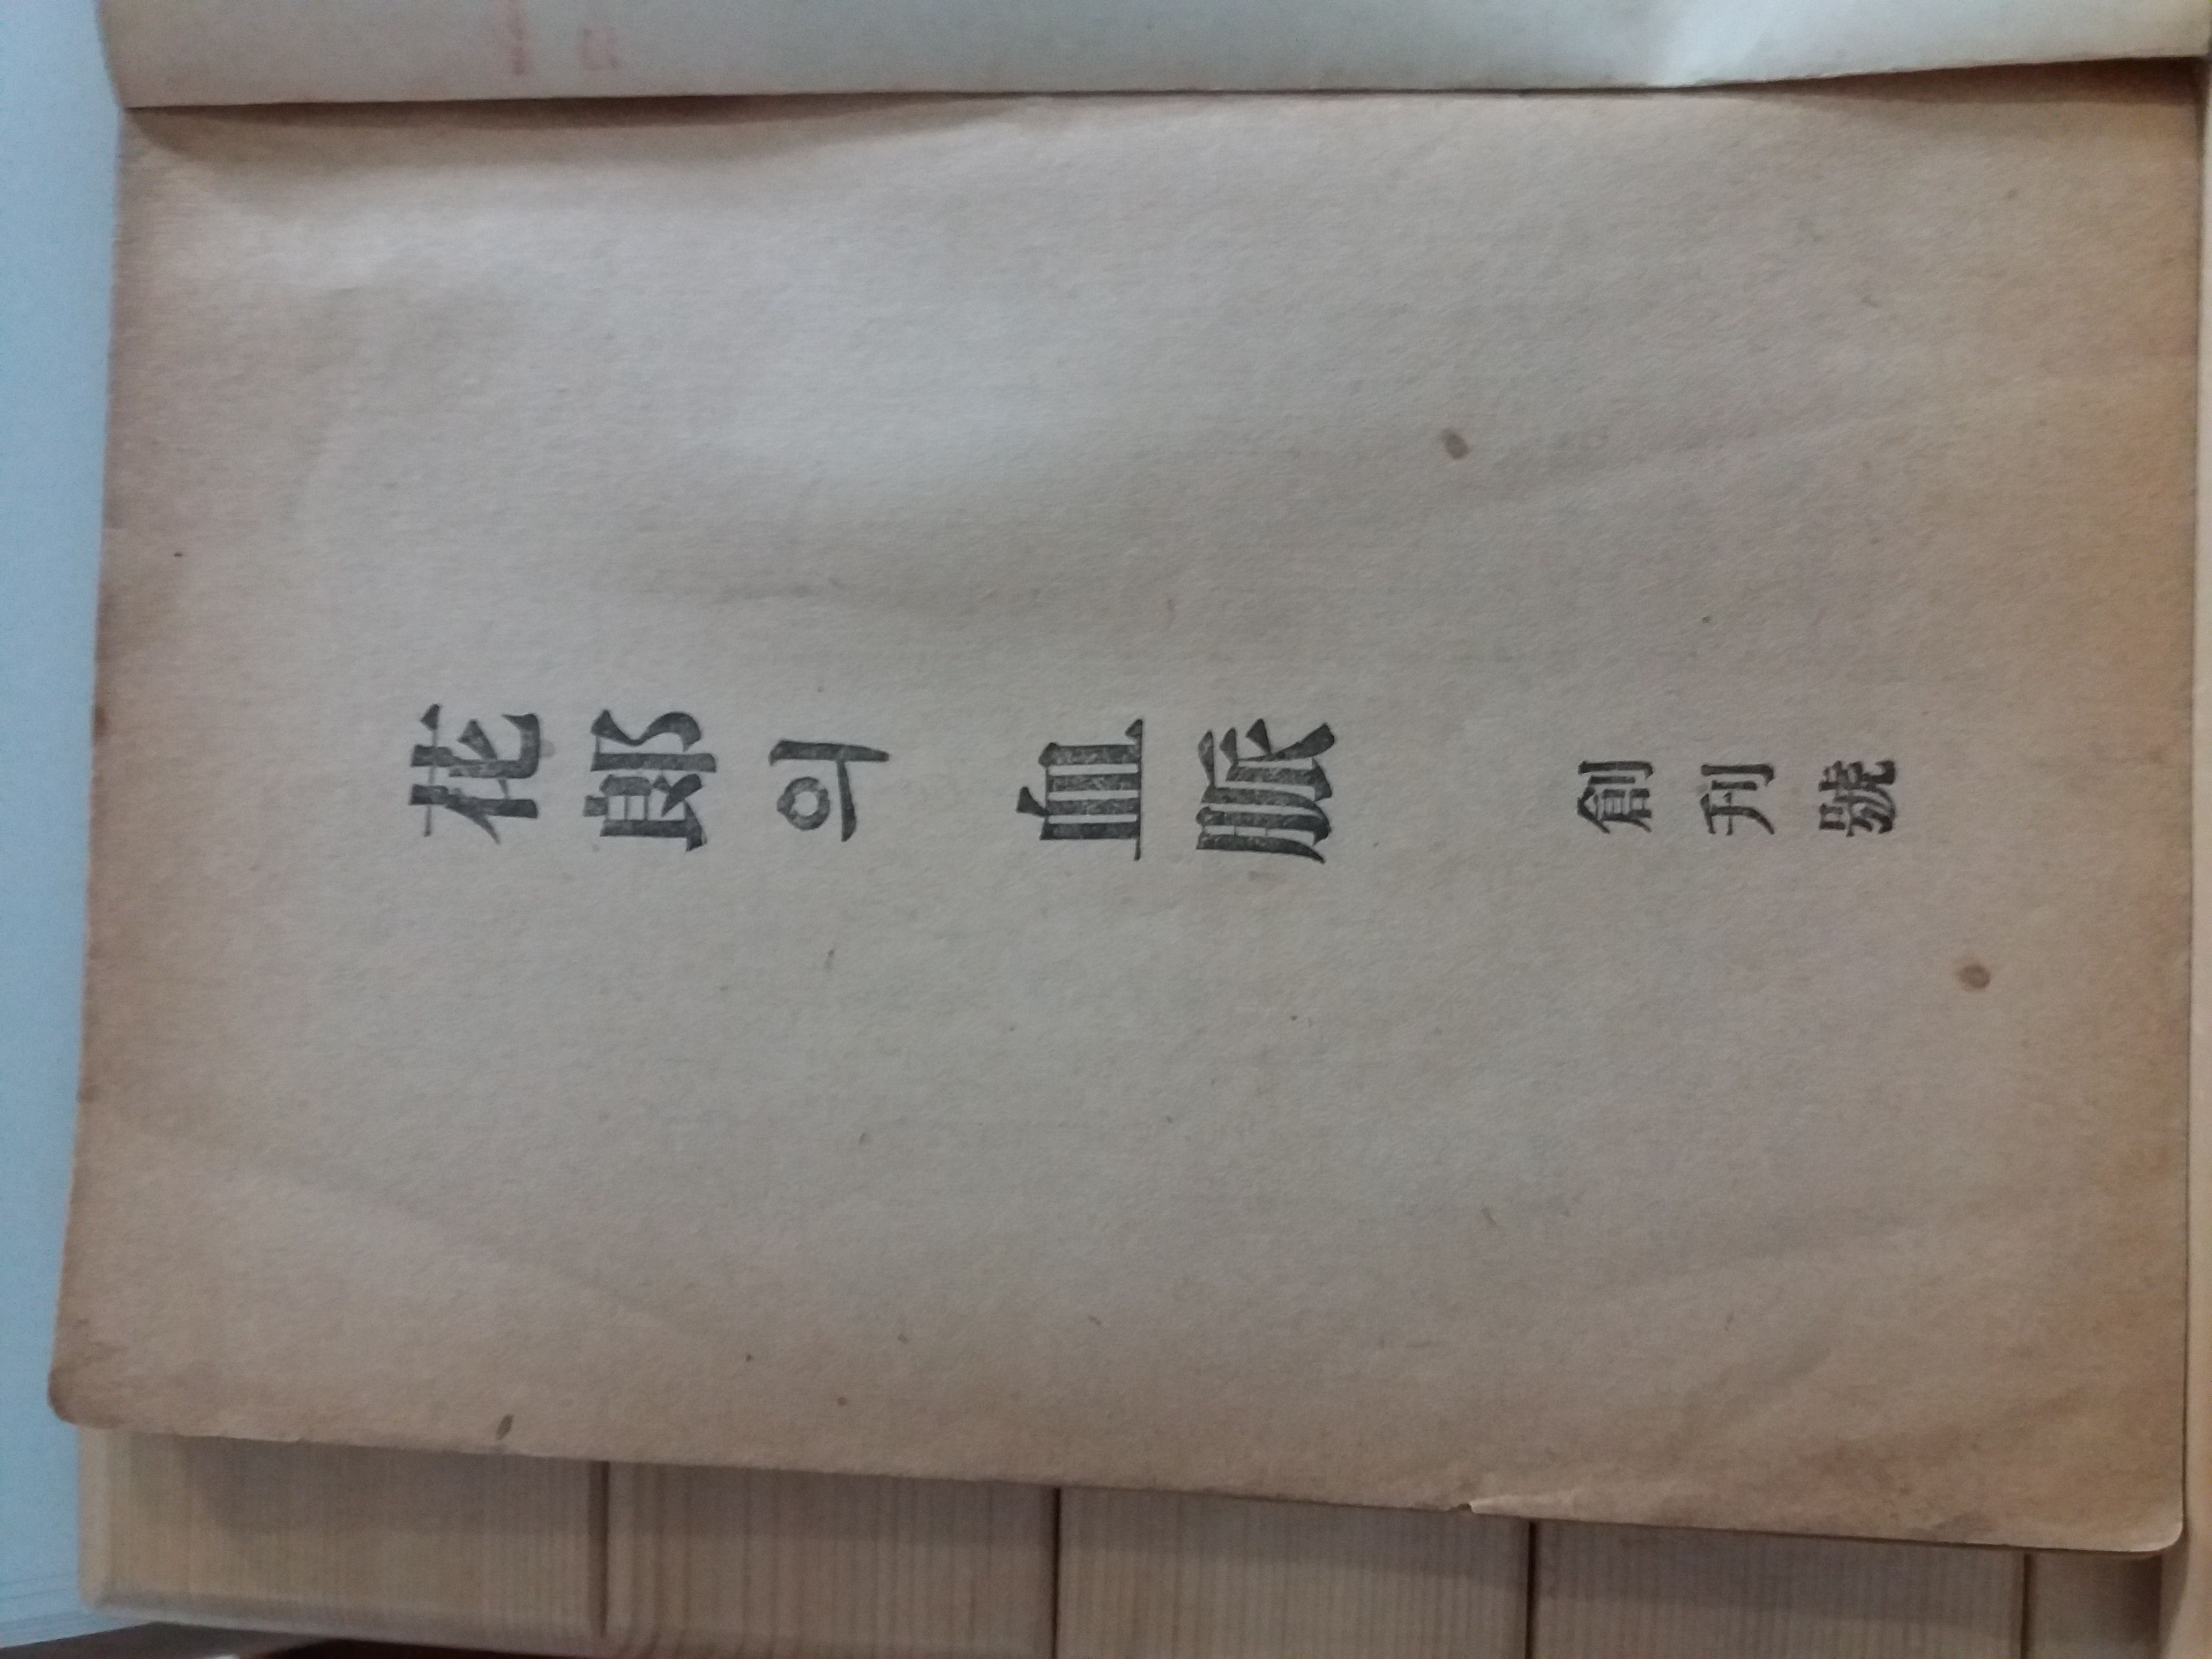 花郞의 血脈 創刊號